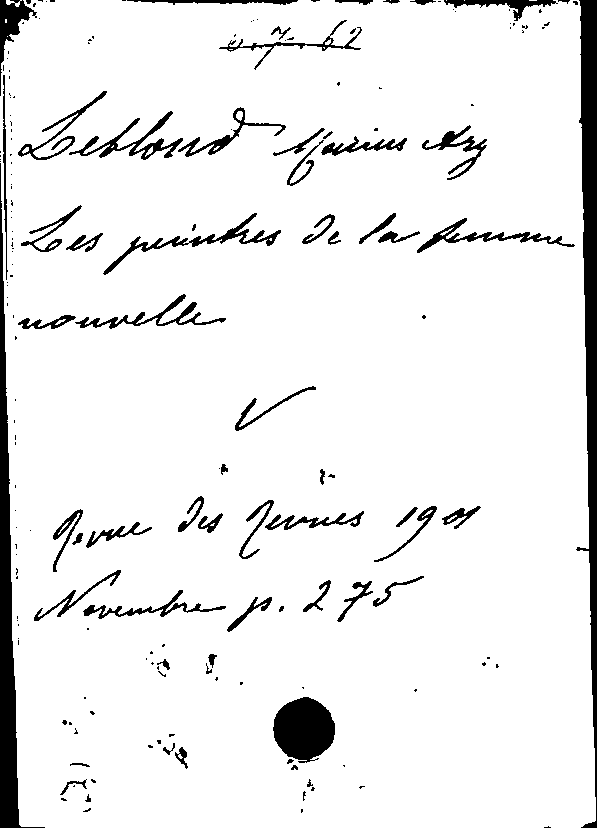 6.7.62
Leblond Marius Ary
Les peintres de la femme
nouvelle
V
Revue des Revues 1901
Novembre p. 275